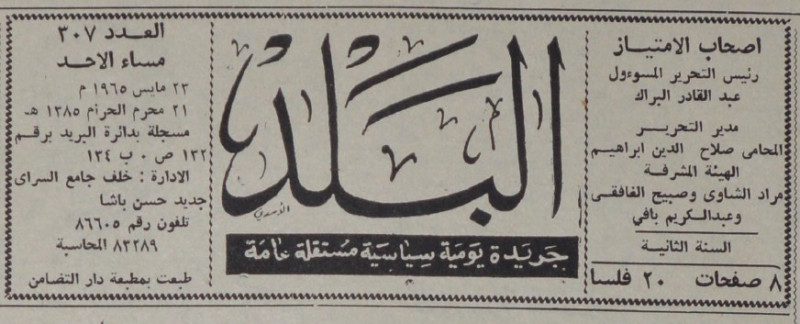 اصحاب الامتياز
رئيس التحرير المسوءول
عبد القادر البراك
مدير التحرير
المحامى صلاح الدين ابراهيم
الهيئة المشرفة
مراد الشاوى وصبيح الغافقى
وعبدالكريم بافي
السنة الثانية
٨ صفحات ٢٠ فلسا
البلد
جريدة يومية سياسية مستقلة عامة
العدد ٣٠٧
مساء الاحد
٢٣ مايس ١٩٦٥ م
٢١ محرم الحرام ١٣٨٥ هـ
مسجلة بدائرة البريد برقم
١٣٢ ص ٠ ب ١٣٤
الادارة : خلف جامع السراى
جديد حسن باشا
تلفون رقم ٨٦٦٠٥
٨٣٢٨٩ المحاسبة
طبعت بمطبعة دار التضامن